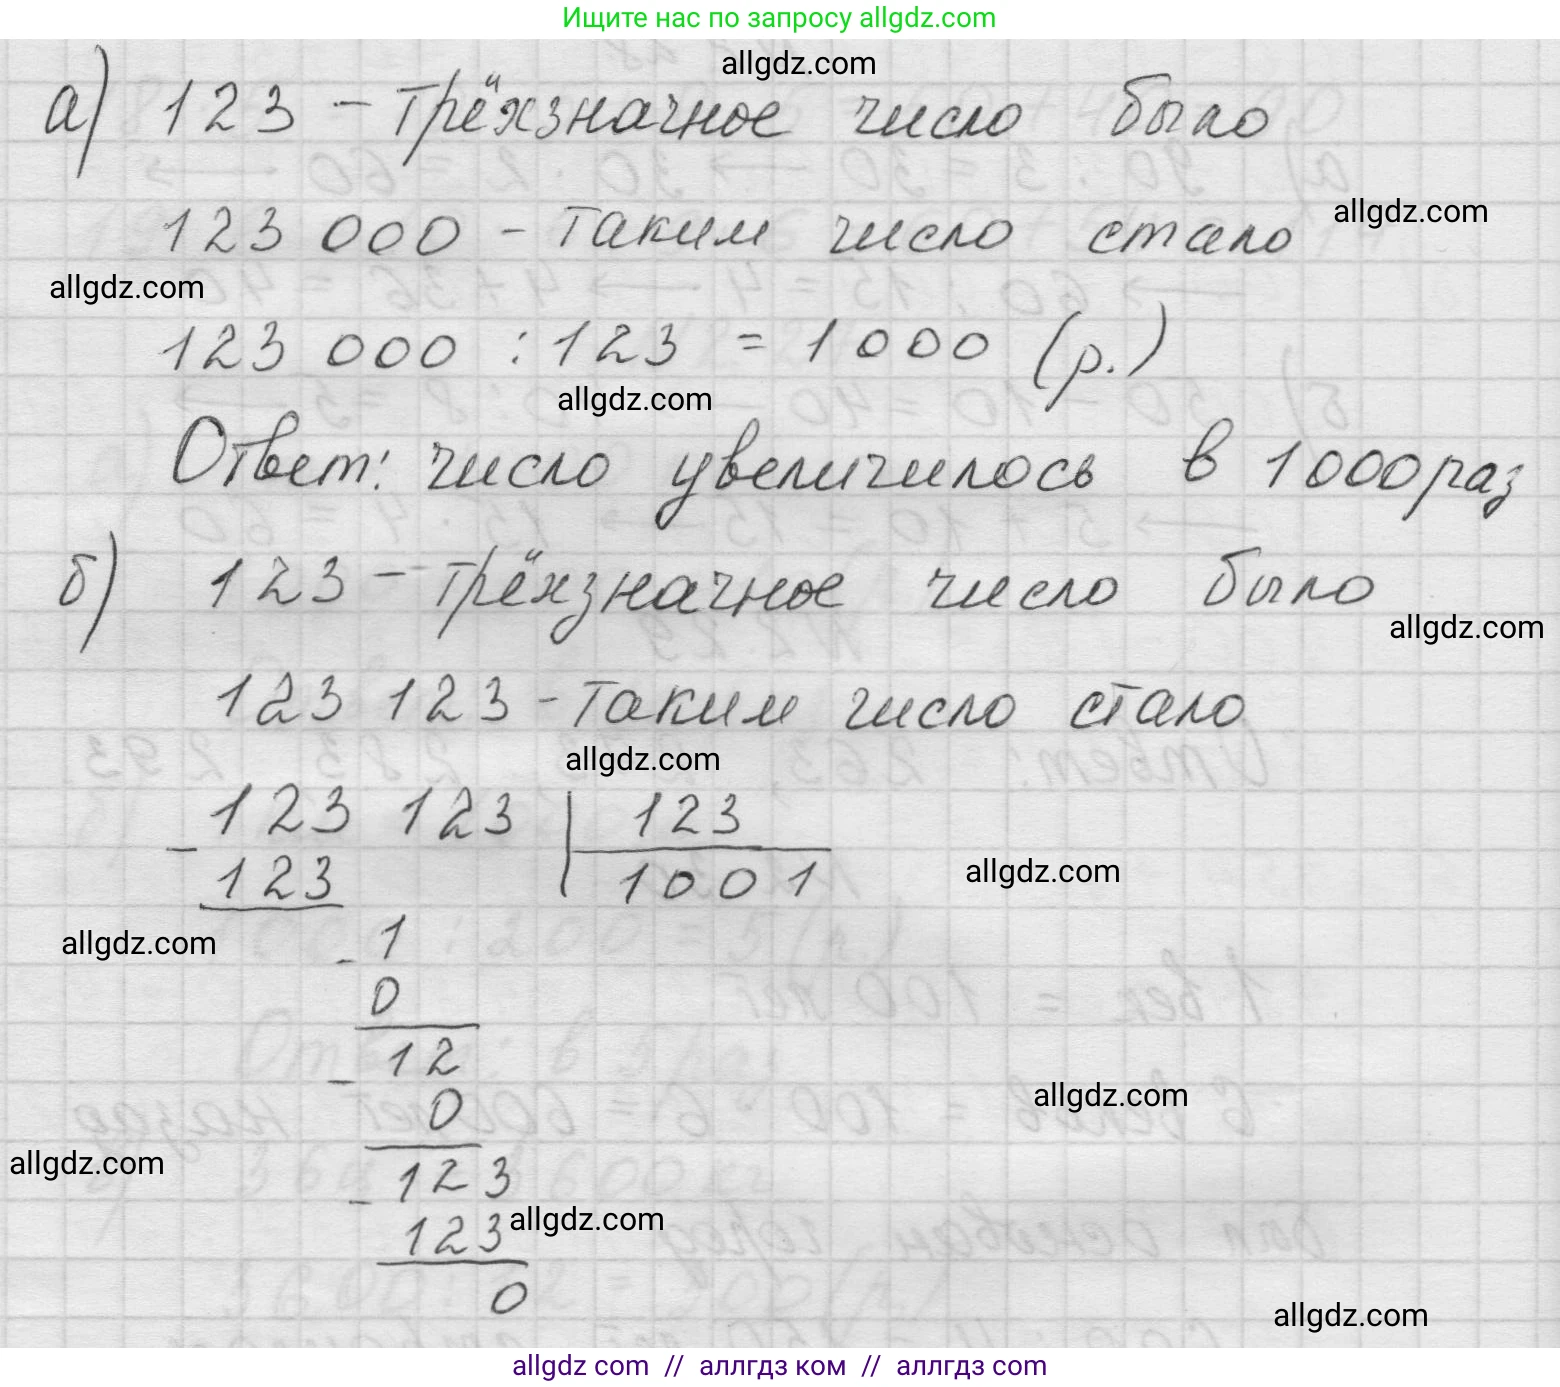 Ищите нас по запросу allgdz.com
allgdz.com
а) 123 - трёхзначное число было
allgdz.com
123 000 - таким число стало
allgdz.com
123 000 : 123 = 1000 (р.)
allgdz.com
Ответ: число увеличилось в 1000 раз
б) 123 - трёхзначное число было
allgdz.com
123 123 - таким число стало
allgdz.com
123 123 | 123
- 123 1001
allgdz.com
allgdz.com
- 1
0
- 12
allgdz.com
0
allgdz.com
- 123
allgdz.com
123
0
allgdz.com
allgdz com // аллгдз ком // аллгдз com